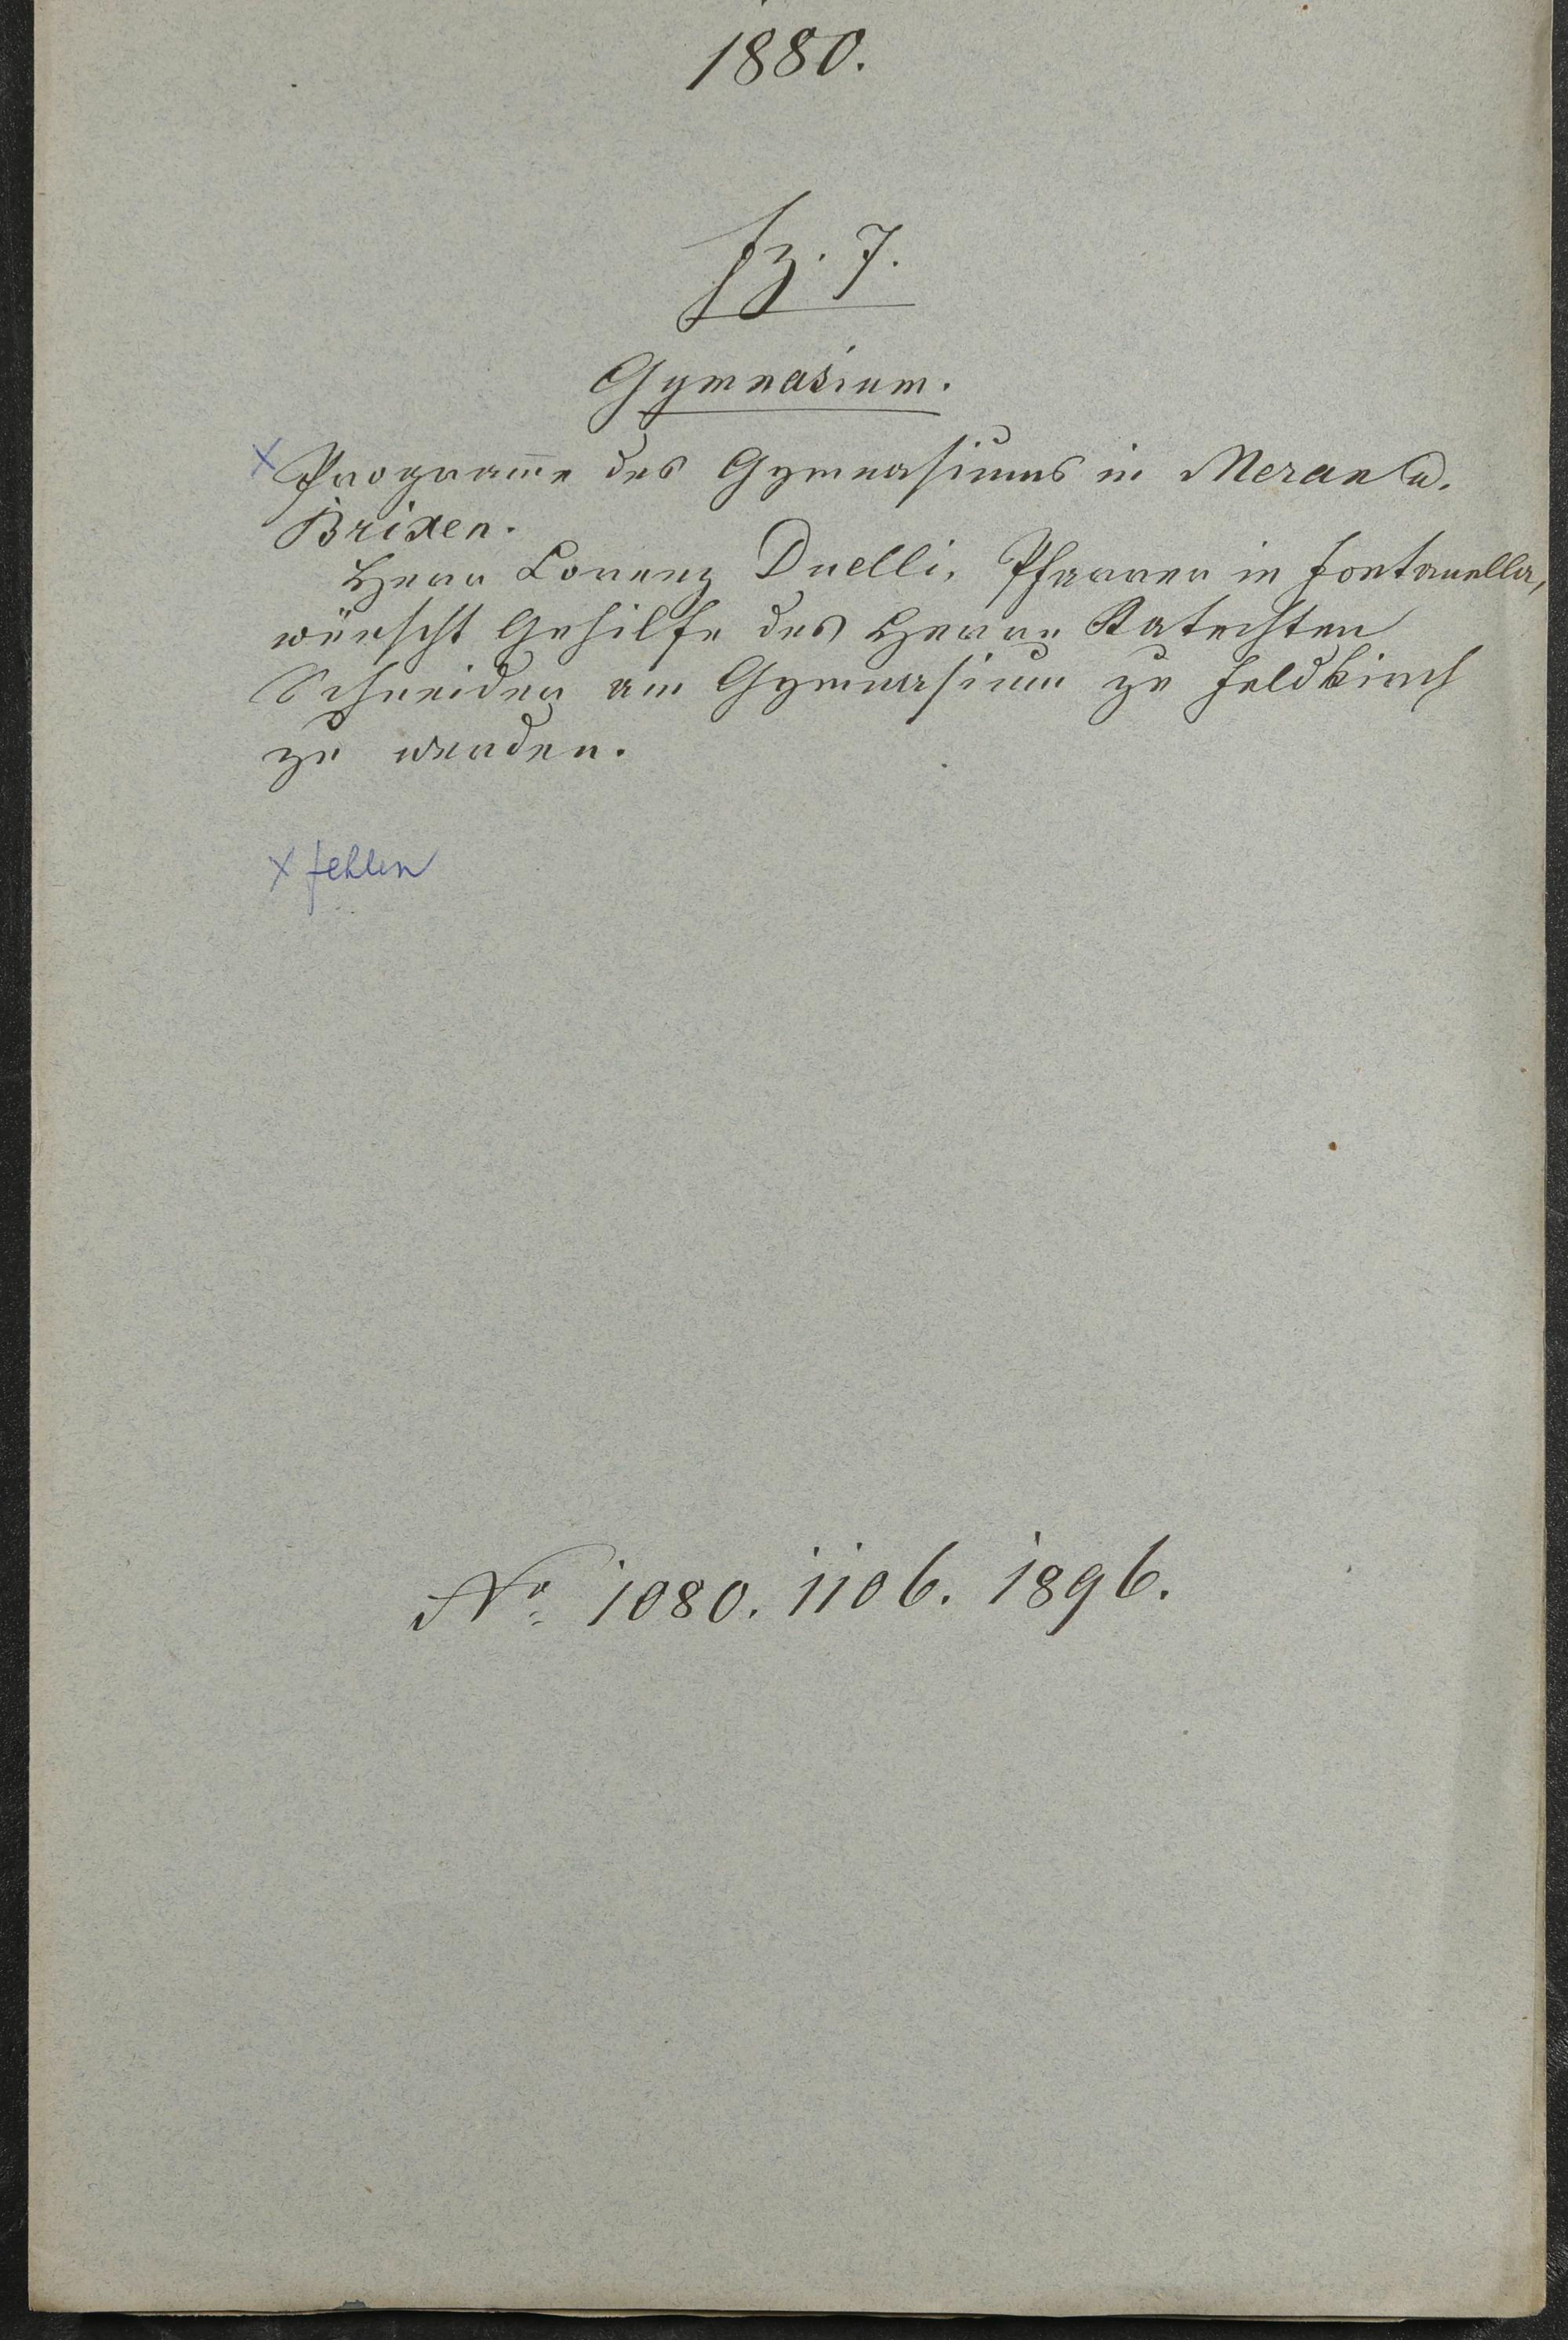 1880.
fz. 7.
Gymnasium.
x Programme des Gymnasiums in Meran u.
Brixen.
Herr Lorenz Duelli, Pfarrer in Fontanella,
wünscht Gehilfe des Herrn Katecheten
Schneider am Gymnasium zu Feldkirch
zu werden.
x fehlen
No 1080. 1106. 1896.